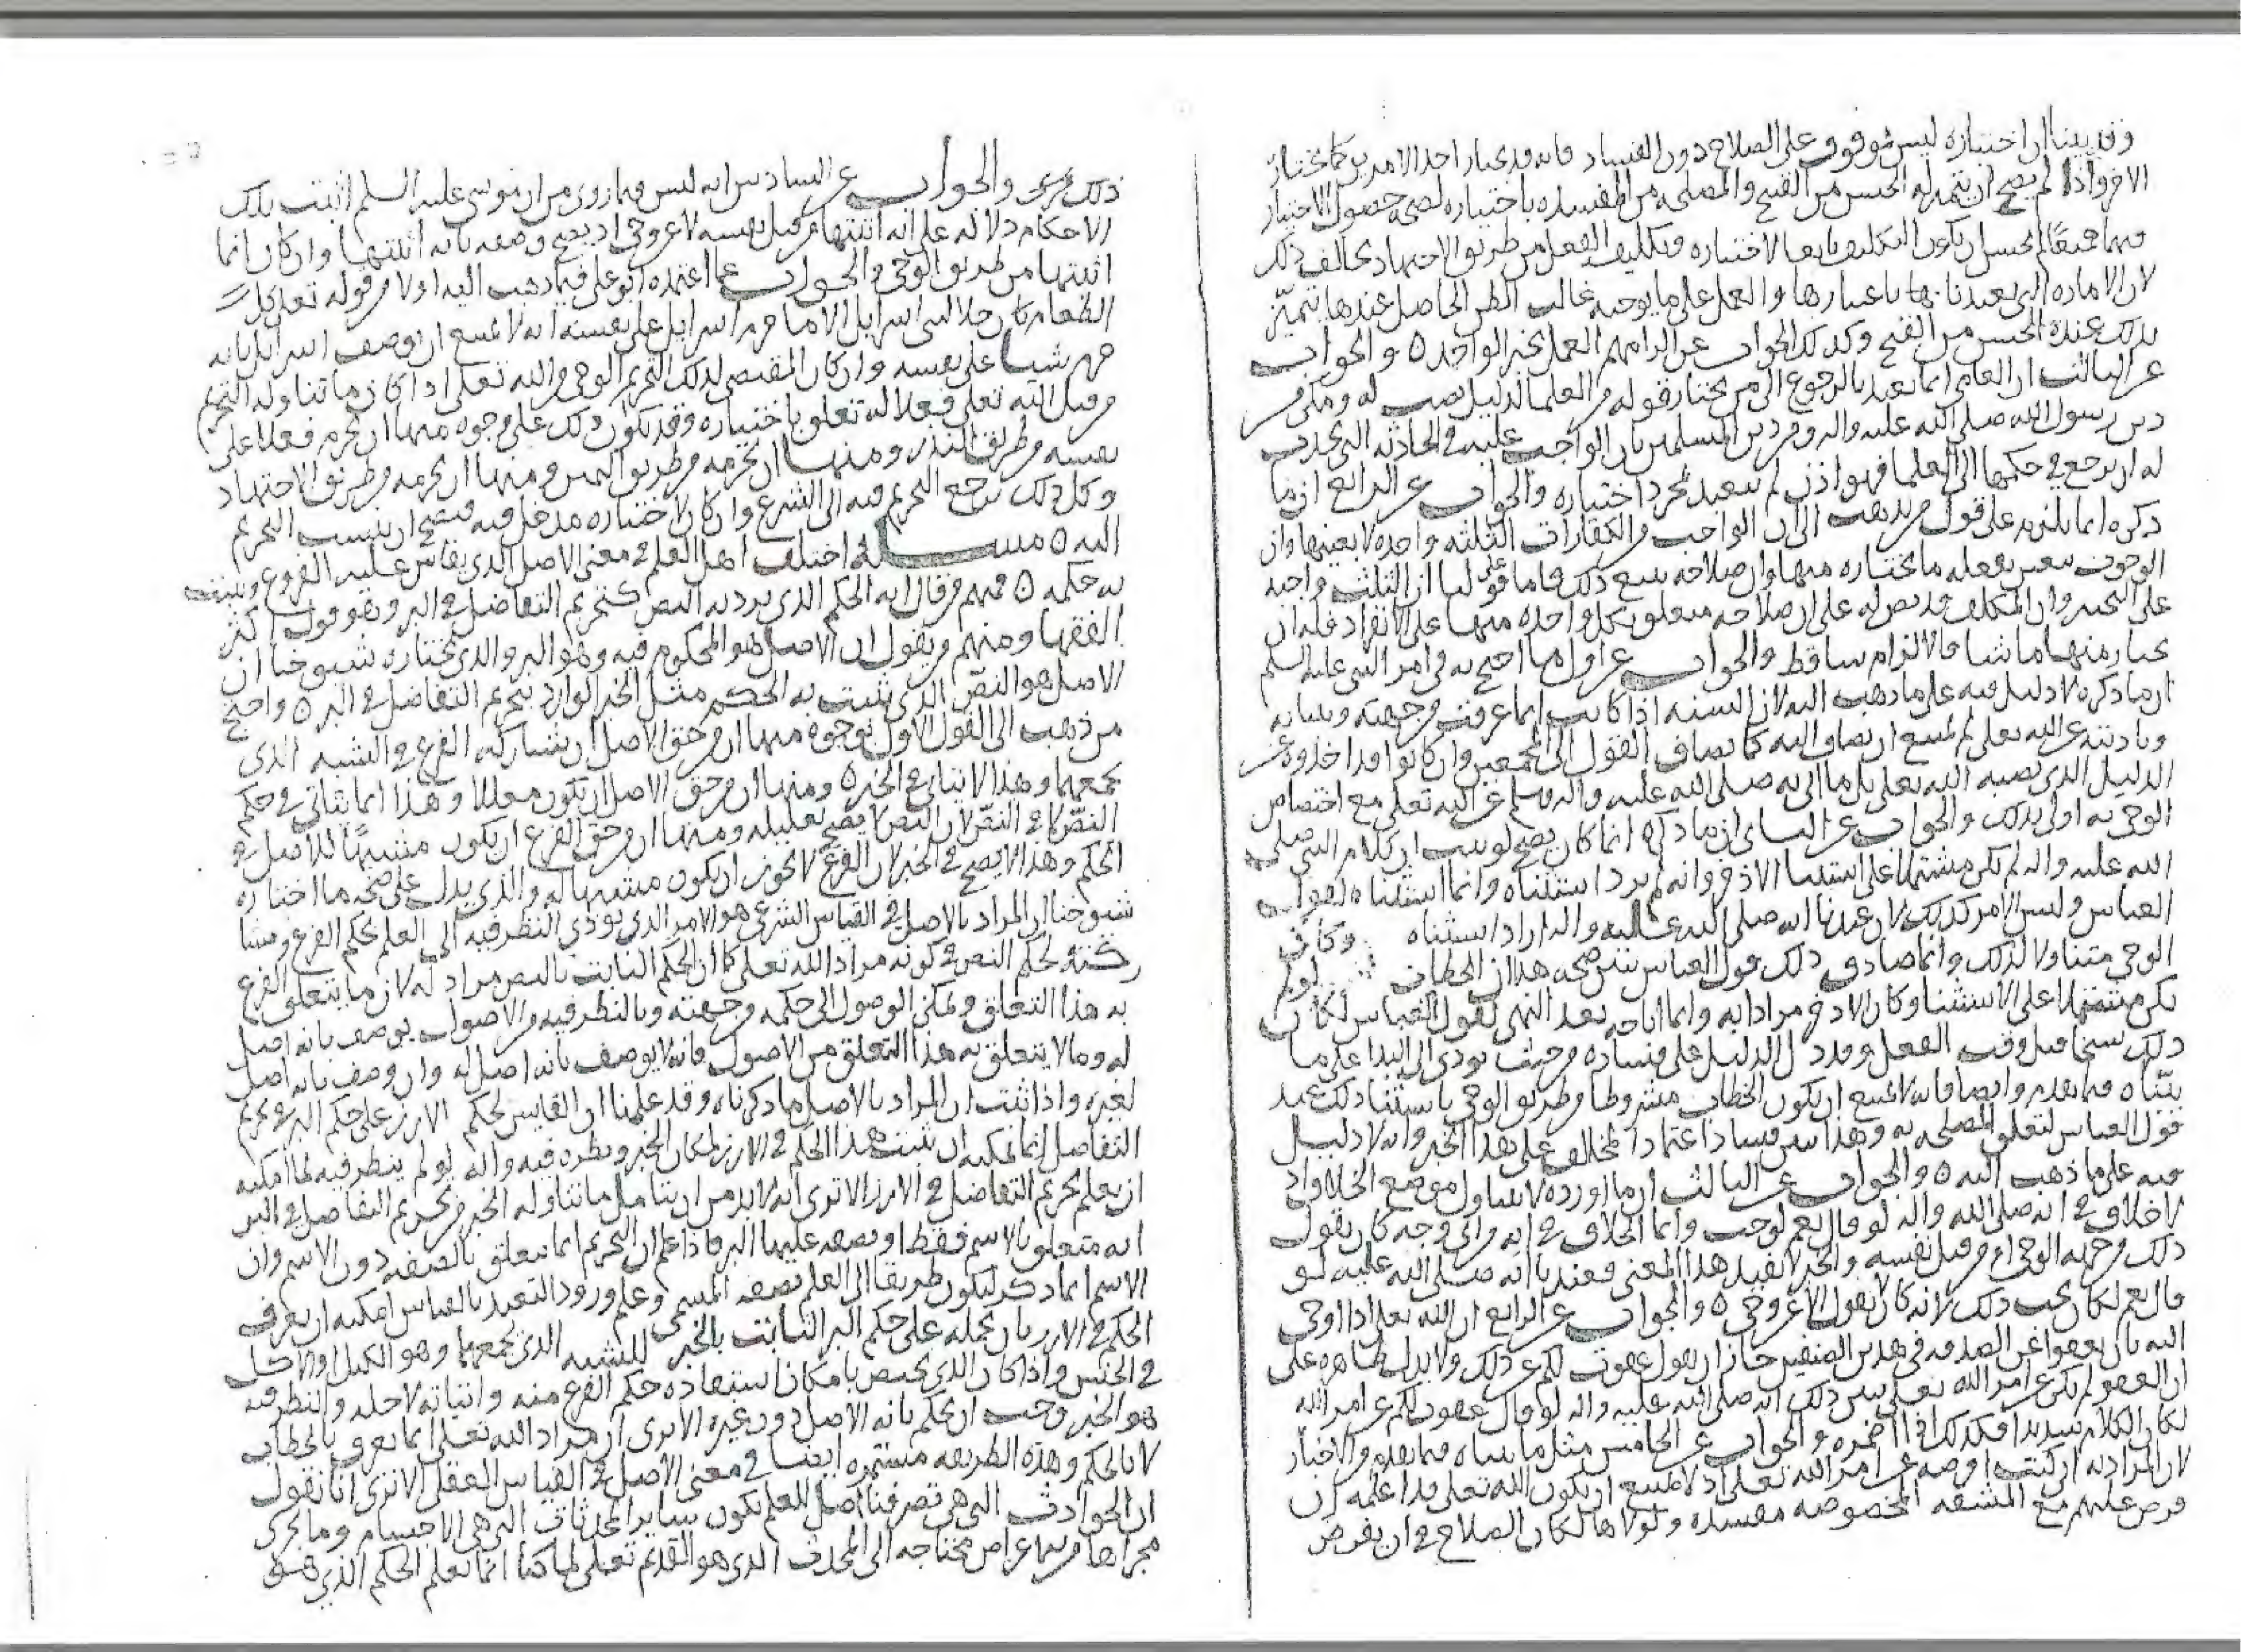 وقد بينا ان اختياره ليس بموقوف على الصلاح دون الفساد فانه قد يختار احد الامرين كما يختار
الاخر واذا لم يصح ان يتميز له الحسن من القبيح والمصلحه من المفسده باختياره لصحه حصول الاختيار
فيهما جميعًا لم يحسن ان يكون التكليف تابعا لاختياره وتكليف الفعل من طريق الاجتهاد يخالف ذلك
لان الاماره التي تعبدنا بها باعتبارها والعمل على ما يوجبه غالب الظن الحاصل عندها يتميّز
بذلك عنده الحسن من القبيح وكذلك الجواب عن الزامهم العمل بخبر الواحد ٥ والجواب
عن الثالث ان العامي انما تعبد بالرجوع الى من يختار قوله من العلما لدليل نصب له ومكن من
دين رسول الله صلى الله عليه واله ومن دين المسلمين بان الواجب عليه في الحادثه التي تحدث
له ان يرجع في حكمها الى العلما فهو اذن لم يتعبد بمجرد اختياره والجواب عن الرابع ان ما
ذكره انما يلزم على قول من يذهب الى ان الواجب من الكفارات الثلثه واحده لا بعينها وان
الوجوب يتعين بفعله ما يختاره منها وان صلاحه يتبع ذلك فاما على قولنا ان الثلث واجبه
على التخيير وان المكلف قد نص له على ان صلاحه متعلق بكل واحده منها على الانفراد فله ان
يختار منها ما شا فالالزام ساقط والجواب عن اول ما احتج به من امر النبي عليه السلم
ان ما ذكره لا دليل فيه على ما ذهب اليه لان السنه اذا كانت انما عرفت من جهته وببيانه
وتاديته عن الله تعلى لم يمتنع ان يضاف اليه كما يضاف القول الى المجمعين وان كانوا قد اخذوه عن
الدليل الذي نصبه الله تعلى بل ما اتى به صلى الله عليه واله وسلم عن الله تعلى مع اختصاص
الوحي به اولى بذلك والجواب عن الثاني ان ما ذكره انما كان يصح لو ثبت ان كلام النبي صلى
الله عليه واله لم يكن مشتملا على استثنا الاذخر وانه لم يرد استثناه وانما استثناه لقول
العباس وليس الامر كذلك لان عندنا انه صلى الله عليه واله اراد استثناه وكان في
الوحي متناولا لذلك وانما صادف ذلك قول العباس يبين صحه هذا ان الخطاب لو لم
يكن مشتملا على الاستثنا وكان الاذخر مرادا به وانما اباحه بعد النهي لقول العباس لكان
ذلك نسخا قبل وقت الفعل وقد دل الدليل على فساده من حيث يودي الى البدا على ما
بيّناه فيما تقدم وايضا فانه لا يمتنع ان يكون الخطاب مشروطا من طريق الوحي باستثنا ذلك عند
قول العباس لتعلق المصلحه به وهذا يبين فساد اعتماد المخالف على هذا الخبر وانه لا دليل
فيه على ما ذهب اليه ٥ والجواب عن الثالث ان ما اورده لا يتناول موضع الخلاف اذ
لا خلاف في انه صلى الله واله لو قال نعم لوجب وانما الخلاف في انه من اي وجه كان يقول
ذلك من جهه الوحي ام من قبل نفسه والخبر لا يفيد هذا المعنى فعندنا انه صلى الله عليه لو
قال نعم لكان يجب ذلك لانه كان لا يقول الا عن وحي ٥ والجواب عن الرابع ان الله تعلى اذا اوحى
اليه بان يعفوا عن الصدقه في هذين الصنفين جاز ان يقول عفوت لكم عن ذلك ولا يدل ظاهره على
ان العفو لم يكن عن امر الله تعلى يبين ذلك انه صلى الله عليه واله لو قال عفوت لكم عن امر الله
لكان الكلام سديدا فكذلك اذا اضمره والجواب عن الخامس مثل ما بيناه فيما تقدم من الاخبار
لان المراد به ان كنت افرضه عن امر الله تعلى اذ لا يمتنع ان يكون الله تعلى قد اعلمه ان
فرض عليهم مع المشقه المخصوصه مفسده ولولاها لكان الصلاح في ان يفرض
ذلك عليهم والجواب عن السادس انه ليس فيما روي من ان موسى عليه السلم اثبت تلك
الاحكام دلاله على انه اثبتها من قبل نفسه لا عن وحي اذ يصح وصفه بانه اثبتها وان كان انما
اثبتها من طريق الوحي والجواب عما اعتمده ابو علي فيما ذهب اليه اولا من قوله تعلى كل
الطعام كان حلا لبني اسرايل الا ما حرم اسرايل على نفسه انه لا يمتنع ان يوصف اسرايل بانه
حرم شيا على نفسه وان كان المقتضي لذلك التحريم الوحي من الله تعلى اذا كان ما تناوله التحريم
من قبل الله تعلى فعلا له تعلق باختياره وقد يكون ذلك على وجوه منها ان يحرم فعلا على
نفسه من طريق النذر ومنها ان يحرمه من طريق اليمين ومنها ان يحرمه من طريق الاجتهاد
وكل ذلك يرجع التحريم فيه الى الشرع وان كان لاختياره مدخل فيه فيصح ان ينسب التحريم
اليه ٥ مسـله اختلف اهل العلم في معنى الاصل الذي يقاس عليه الفروع ويثبت
به حكمه ٥ فمنهم من قال انه الحكم الذي يرد به النص كتحريم التفاضل في البر وهو قول اكثر
الفقها ومنهم من يقول ان الاصل هو المحكوم فيه وهو البر والذي يختاره شيوخنا ان
الاصل هو النصّ الذي يثبت به الحكم مثل الخبر الوارد بتحريم التفاضل في البر ٥ واحتج
من ذهب الى القول الاول بوجوه منها ان من حق الاصل ان يشاركه الفرع في الشبه الذي
يجمعهما وهذا لا يتاتى في الخبر ٥ ومنها ان من حق الاصل ان يكون معللا وهذا انما يتاتى في حكم
النصّ لا في النصّ لان النص لا يصح تعليله ومنها ان من حق الفرع ان يكون مشبهًا للاصل في
الحكم وهذا لا يصح في الخبر لان الفرع لا يجوز ان يكون مشبها له والذي يدل على صحه ما اختاره
شيوخنا ان المراد بالاصل في القياس الشرعي هو الامر الذي يودي النظر فيه الى العلم بحكم الفرع ومشا
ركته لحكم النص في كونه مرادا لله تعلى كما ان الحكم الثابت بالنص مراد له لان ما يتعلق الفرع
به هذا التعلق ويمكن الوصول الى حكمه من جهته وبالنظر فيه من الاصول يوصف بانه اصل
له وما لا يتعلق به هذا التعلق من الاصول فانه لا يوصف بانه اصل له وان وصف بانه اصل
لغيره واذا ثبت ان المراد بالاصل ما ذكرناه وقد علمنا ان القايس لحكم الارز على حكم البر في تحريم
التفاضل انما يمكنه ان يثبت هذا الحكم في الارز لمكان الخبر ونظره فيه وانه لو لم ينظر فيه لما امكنه
ان يعلم تحريم التفاضل في الارز الا ترى انه لا بد من ان يتامل ما تناوله الخبر من تحريم التفاضل في البر
انه متعلق بالاسم فقط او بصفه عليها البر فاذا علم ان التحريم انما تعلق بالصفه دون الاسم وان
الاسم انما ذكر ليكون طريقا الى العلم بصفه المسمى وعلم ورود التعبد بالقياس امكنه ان يعرف
الحكم في الارز بان يحمله على حكم البر الثابت بالخبر للشبه الذي يجمعهما وهو الكيل او الاكل
في الجنس واذا كان الذي يختص بامكان استفاده حكم الفرع منه واثباته لاجله والنظر فيه
هو الخبر وجب ان يحكم بانه الاصل دون غيره الا ترى ان مراد الله تعلى انما يعرف بالخطاب
لا بالحكم وهذه الطريقه مستمره ايضا في معنى الاصل في القياس العقلي الا ترى انا نقول
ان الحوادث التي هي تصرفنا اصل للعلم بكون ساير المحدثات التي هي الاجسام وما يجرى
مجراها من الاعراض محتاجه الى المحدث الذي هو القديم تعلى لما كنا انما نعلم الحكم الذي هو